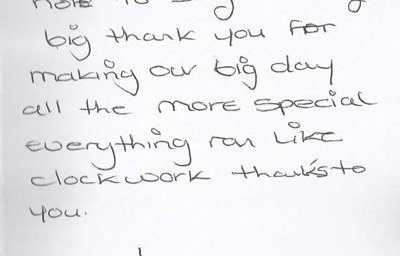 big thank you for
making our big day
all the more special
everything ran like
clockwork thanks to
you.